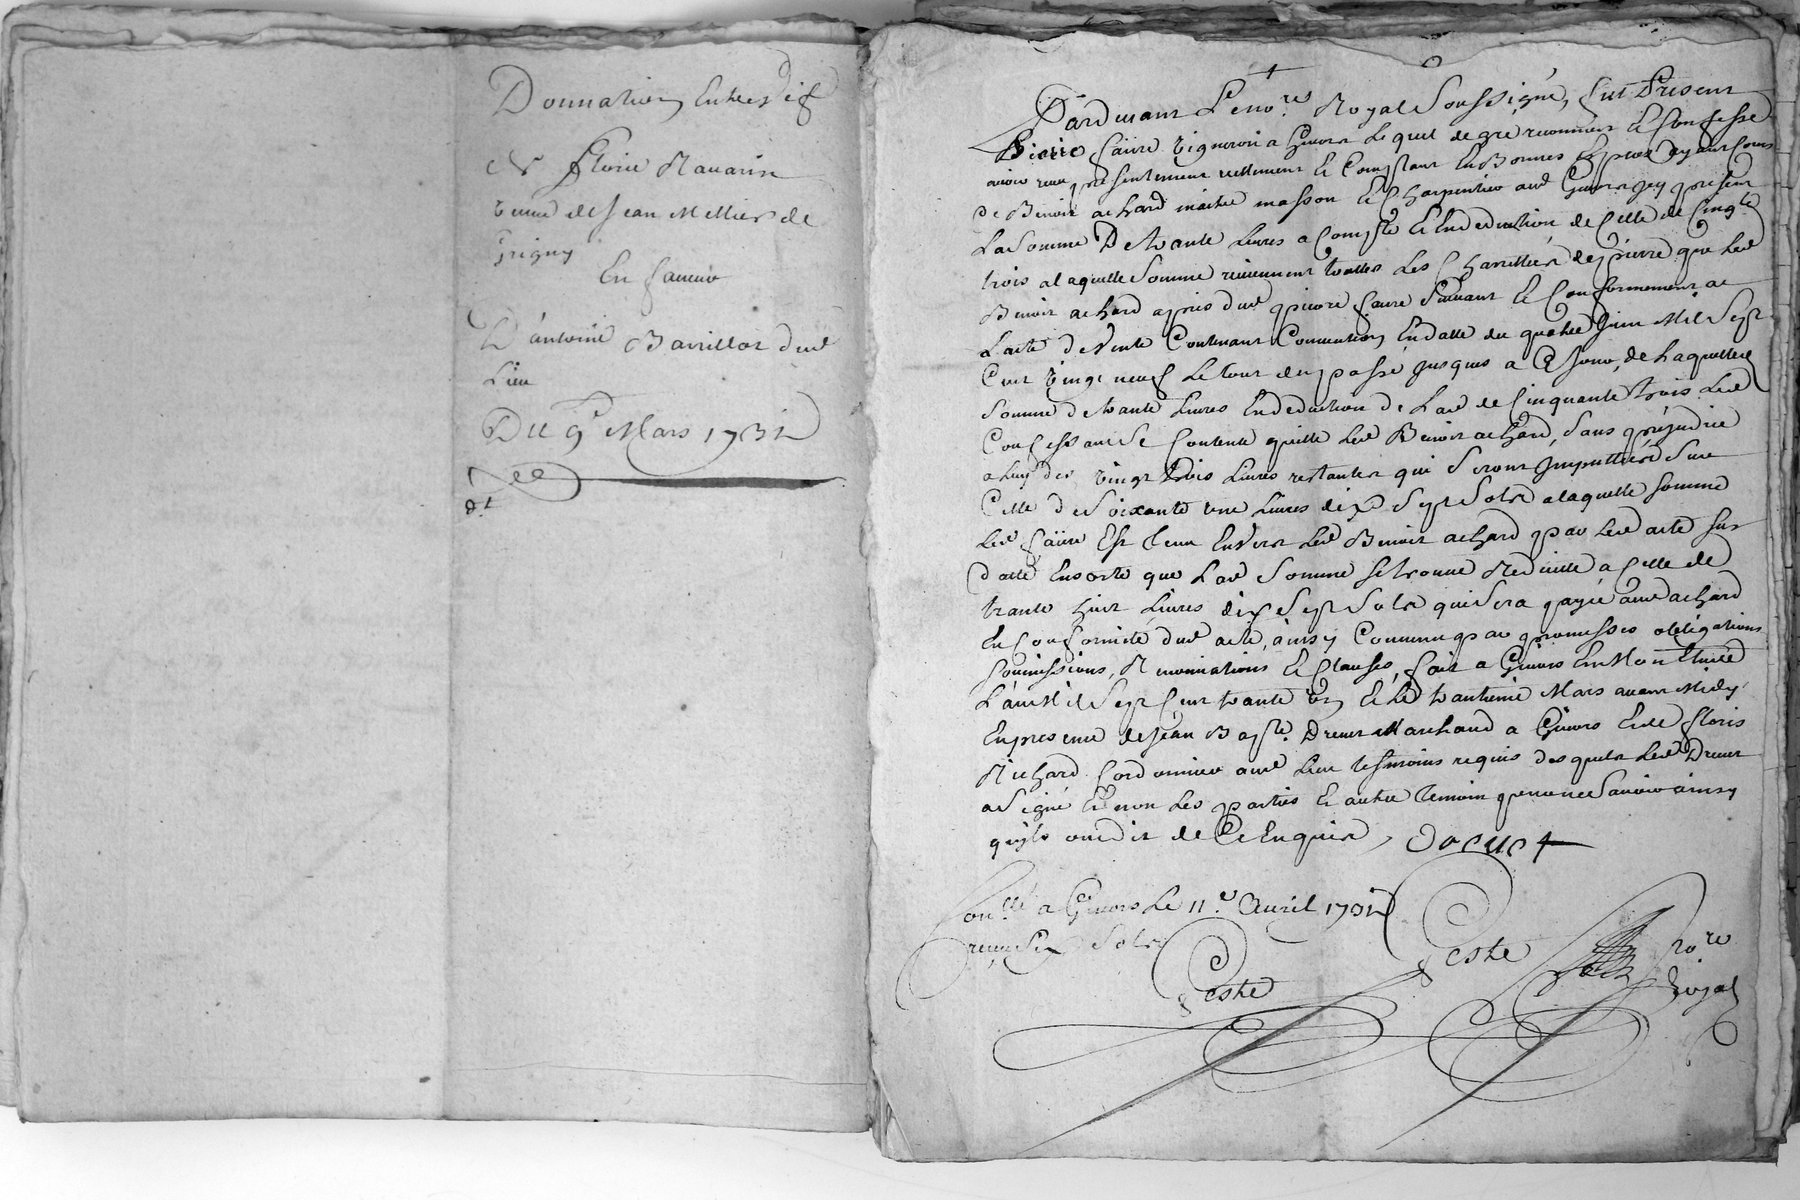 Donnation Entrevif
de florie Navarin
veuve de Jean Mellier de
Grigny
En faveur
D'antoine Barrillot dud
Lieu
Du 9e Mars 1731
Pardevant Le no.re Royal Soussigné, fut Present
Pierre faure vigneron a Givors Lequel de gré reconnoit et Confesse
avoir receu presentement reellement et Comptant En Bonnes Especes ayant Cours
de Benoit achard maitre masson et Charpentier aud Givors icy present
La Somme De trante Livres a Compte et En deduction de Celle de Cinq.te
trois a laquelle Somme reviennent toattes Les Charretties de pierre que Led
Benoit achard a pris dud pierre faure Suivant et Conformement a
L'acte de Vente Contenant Convention En datte du quatre Juin Mil Sept
Cent vingt neuf Le tout du passé jusques a Ce Jour, de Laquelle
Somme de trante Livres En deduction de Lad de Cinquante trois Led
Confessant Se Contente quitte Led Benoit achard, Sans préjudice
a Luy des vingt trois Livres restantes qui Seront Imputtées Sur
Celle de Soixante une Livres dix Sept Sols a laquelle Somme
Led faure Est tenu Envers Led Benoit achard par Led acte Sus
datté En sorte que Lad Somme Se trouve Reduitte a Celle de
trante huit Livres dix Sept Sols qui Sera payée aud achard
En Conformité dud acte, ainsy Convenu par promesses obligations
Soumissions, Renonciations et Clauses, fait a Givors En Mon Etude
L'an Mil Sept Cent trante un et Le trantieme Mars avant Midy
En presence de Jean Bapt.e Drevet Marchand a Givors et de floris
Richard Cordonnier aud Lieu tesmoins requis des quels Led Drevet
a Signé et non Les parties et autre temoin pour ne Savoir ainsy
quils ont dit de Ce Enquis,
Drevet
Con.llé a Givors Le 11.e Avril 1731
receu Six Sols
Peste
Peste
no.re
Royal